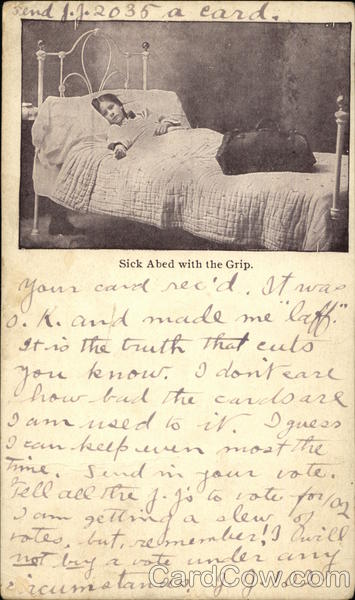 Send J.J. 2035 a card.
Sick Abed with the Grip.
Your card rec'd. It was
O.K. and made me "laff."
It is the truth that cuts
you know. I don't care
how bad the cards are
I am used to it. I guess
I can keep even most the
time. Send in your vote.
Tell all the J.J's to vote for 102
I am getting a slew of
votes, but, remember! I will
not buy a vote under any
circumstances.
CardCow.com